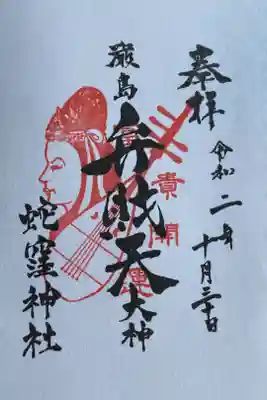 奉拝
令和二年
十月三十日
厳島
弁財天
大神
蛇窪神社